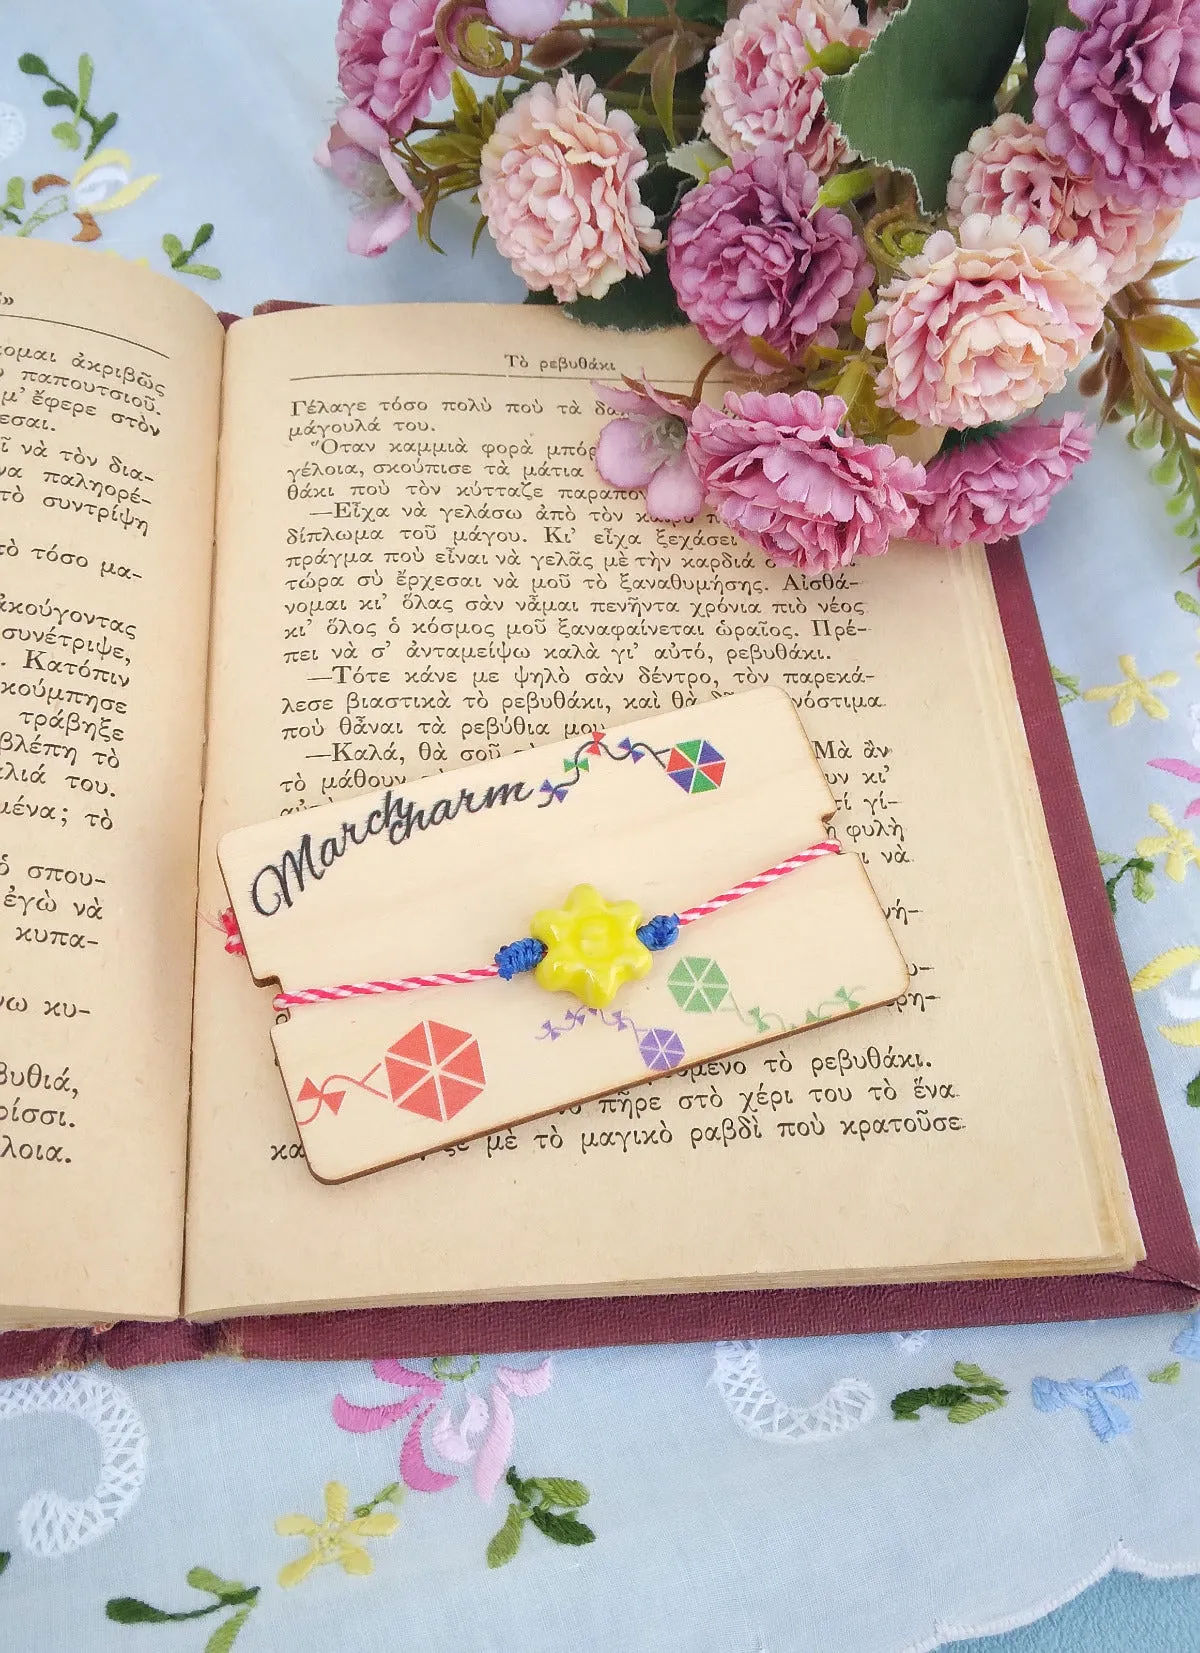 ομαι ἀκριβῶς
παπουτσιοῦ.
μ' ἔφερε στὸν
εσαι.
ῖ νὰ τὸν δια-
να παληορέ-
τὸ συντρίψη
ὸ τόσο μα-
ἀκούγοντας
συνέτριψε,
. Κατόπιν
κούμπησε
τράβηξε
βλέπη τὸ
λιά του.
μένα; τὸ
ὁ σπου-
ἐγὼ νὰ
κυπα-
νω κυ-
βυθιά,
ρίσσι.
λοια.
Τὸ ρεβυθάκι
Γέλαγε τόσο πολὺ ποὺ τὰ
μάγουλά του.
Ὅταν καμμιὰ φορὰ μπόρ
γέλοια, σκούπισε τὰ μάτια
θάκι ποὺ τὸν κύτταζε παραπον
—Εἶχα νὰ γελάσω ἀπὸ τὸν
δίπλωμα τοῦ μάγου. Κι' εἶχα ξεχάσει
πράγμα ποὺ εἶναι νὰ γελᾶς μὲ τὴν καρδιά
τώρα σὺ ἔρχεσαι νὰ μοῦ τὸ ξαναθυμήσης. Αἰσθά-
νομαι κι' ὅλας σὰν νἆμαι πενῆντα χρόνια πιὸ νέος
κι' ὅλος ὁ κόσμος μοῦ ξαναφαίνεται ὡραῖος. Πρέ-
πει νὰ σ' ἀνταμείψω καλὰ γι' αὐτό, ρεβυθάκι.
—Τότε κάνε με ψηλὸ σὰν δέντρο, τὸν παρεκά-
λεσε βιαστικὰ τὸ ρεβυθάκι, καὶ θὰ νόστιμα
ποὺ θἆναι τὰ ρεβύθια μου
—Καλά, θὰ σοῦ Μὰ ἂν
τὸ μάθουν υν κι'
τί γί-
φυλὴ
νὰ
νή-
March charm
ρη-
μενο τὸ ρεβυθάκι.
πῆρε στὸ χέρι του τὸ ἕνα
κα ξε μὲ τὸ μαγικὸ ραβδὶ ποὺ κρατοῦσε